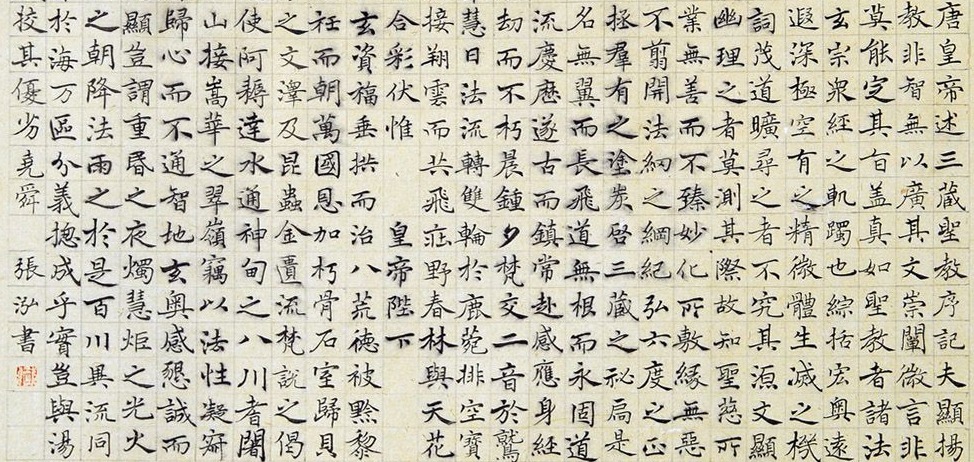 唐皇帝述三藏聖教序記夫顯揚
教非智無以廣其文崇闡微言非
莫能定其旨盖真如聖教者諸法
玄宗衆經之軌躅也綜括宏奧遠
遐深極空有之精微體生滅之機
詞茂道曠尋之者不究其源文顯
幽理之者莫測其際故知聖慈所
業無善而不臻妙化所敷緣無惡
不翦開法網之綱紀弘六度之正
拯羣有之塗炭啓三藏之祕扃是
名無翼而長飛道無根而永固道
流慶歷遂古而鎮常赴感應身經
劫而不朽晨鍾夕梵交二音於鷲
慧日法流轉雙輪於鹿菀排空寶
接翔雲而共飛莊野春林與天花
合彩伏惟 皇帝陛下
玄資福垂拱而治八荒德被黔黎
衽而朝萬國恩加朽骨石室歸貝
之文澤及昆蟲金匱流梵說之偈
使阿耨達水通神甸之八川耆闍
山接嵩華之翠嶺竊以法性凝寂
歸心而不通智地玄奧感懇誠而
顯豈謂重昏之夜燭慧炬之光火
之朝降法雨之於是百川異流同
於海万區分義揔成乎實豈與湯
挍其優劣堯舜 張泓書